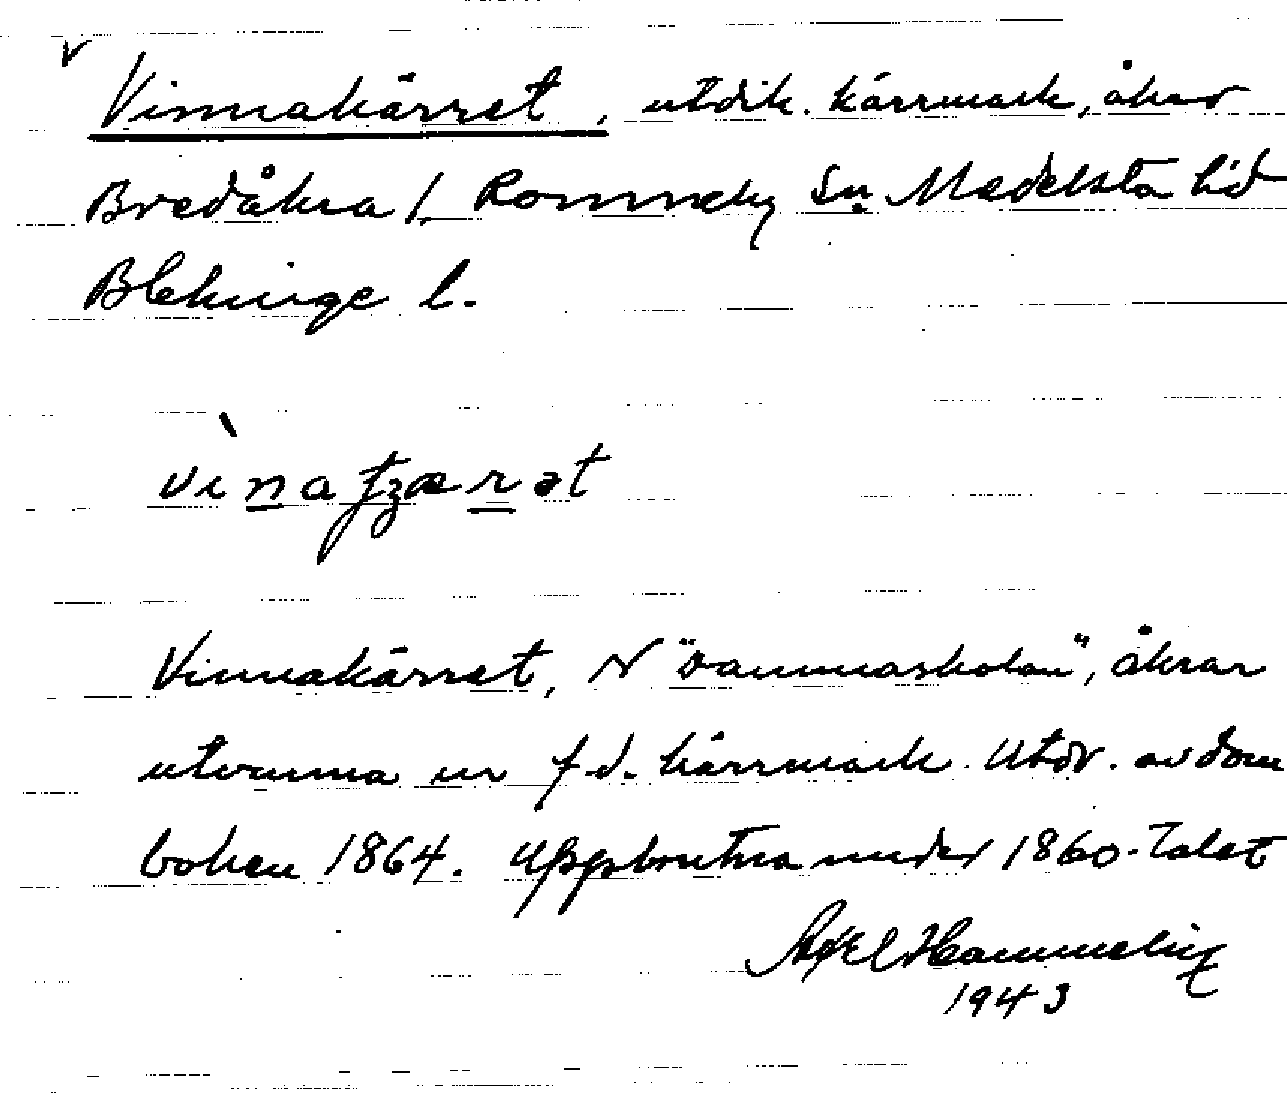 v
Vinnakärret, utdik. kärrmark, åker
Bredåkra /. Ronneby Sn Medelsta hd
Blekinge l.
vìnatzærət
Vinnakärret, N "vannaskolan", åkrar
utvunna ur f.d. kärrmark. Utdr. av dom
boken 1864. Uppbrutna under 1860-talet
Axel Hammelin
1943